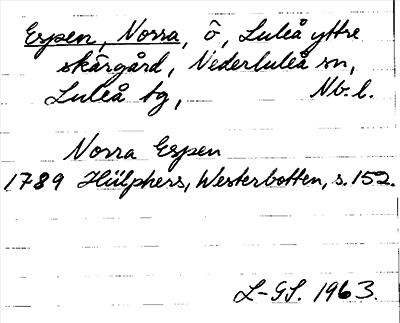 Espen, Norra, ö, Luleå yttre
skärgård, Nederluleå sn,
Luleå tg, Nb. l.
Norra Espen
1789 Hülphers, Westerbotten, s. 152.
L-GS. 1963.